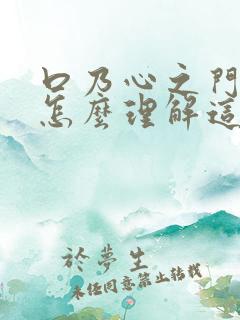 口乃心之門
怎麼理解這
於夢生
未經同意禁止轉載